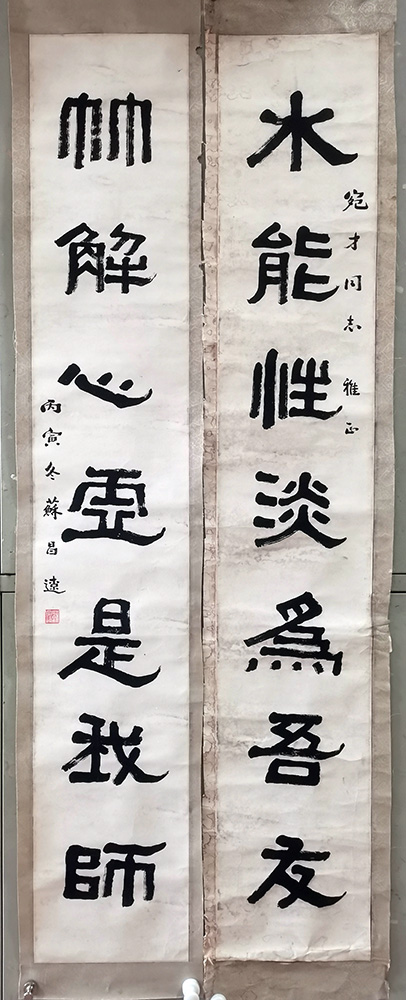 宛才同志 雅正
水能性淡為吾友
竹解心虛是我師
丙寅冬蘇昌遼